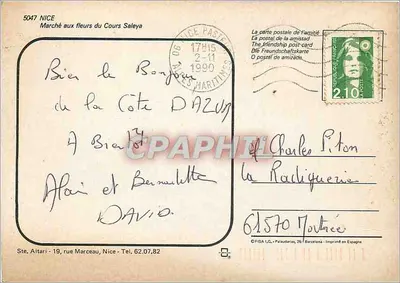 5047 NICE
Marché aux fleurs du Cours Saleya
La carte postale de l'amitié
La postal de la amistad
The friendship post-card
Die Freundschaftskarte
O postal de amizade
06 NICE
17H15
2-11
1990
ALPES MARITIMES
2,10
Bien le Bonjour
de la Côte DAZUR
A Bientôt
Alain et Bernadette
DAVID
CPAPHIL
Charles Piton
La
61570 Mortrée
Ste. Altari - 19, rue Marceau, Nice - Tel. 62.07.82